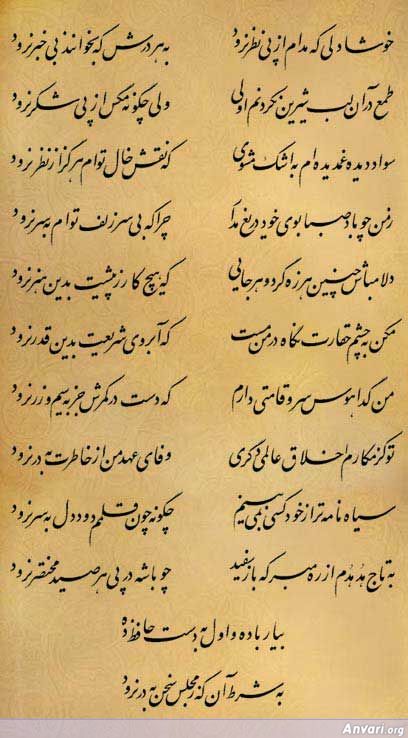 خوشا دلی که مدام از پی نظر نرود به هر درش که بخوانند بی خبر نرود
طمع در آن لب شیرین نکردنم اولی ولی چگونه مگس از پی شکر نرود
سواد دیده غمدیده ام به اشک مشوی که نقش خال توام هرگز از نظر نرود
ز من چو باد صبا بوی خود دریغ مدار چرا که بی سر زلف توام به سر نرود
دلا مباش چنین هرزه گرد و هرجایی که هیچ کار ز پیشت بدین هنر نرود
مکن به چشم حقارت نگاه در من مست که آبروی شریعت بدین قدر نرود
من گدا هوس سرو قامتی دارم که دست در کمرش جز به سیم و زر نرود
تو کز مکارم اخلاق عالمی دگری وفای عهد من از خاطرت به در نرود
سیاه نامه تر از خود کسی نمی بینم چگونه چون قلمم دود دل به سر نرود
به تاج هدهدم از ره مبر که باز سفید چو باشه در پی هر صید مختصر نرود
بیار باده و اول به دست حافظ ده
به شرط آن که ز مجلس سخن به در نرود
Anvari.org